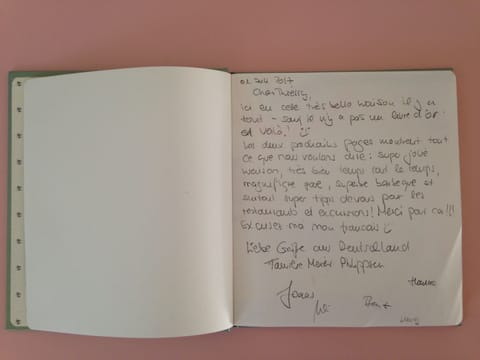 01. Juli 2017
Cher Thierry,
Ici en cette très belle maison il y a
tout - sauf il n'y a pas un livre d'or
et voilà! ☺
Les deux prochains pages montrent tout
ce que nous voulons dire: super jolie
maison, très bien tout le temps,
magnifique, superbe barbeque et
surtout super tipps devans pour les
restaurants et excursions! Merci pour ca!!!
Excuset moi mon francais ☺
Liebe Grüße aus Deutschland
Familie Meier-Philippsen
Hanno
Jonas
Ben